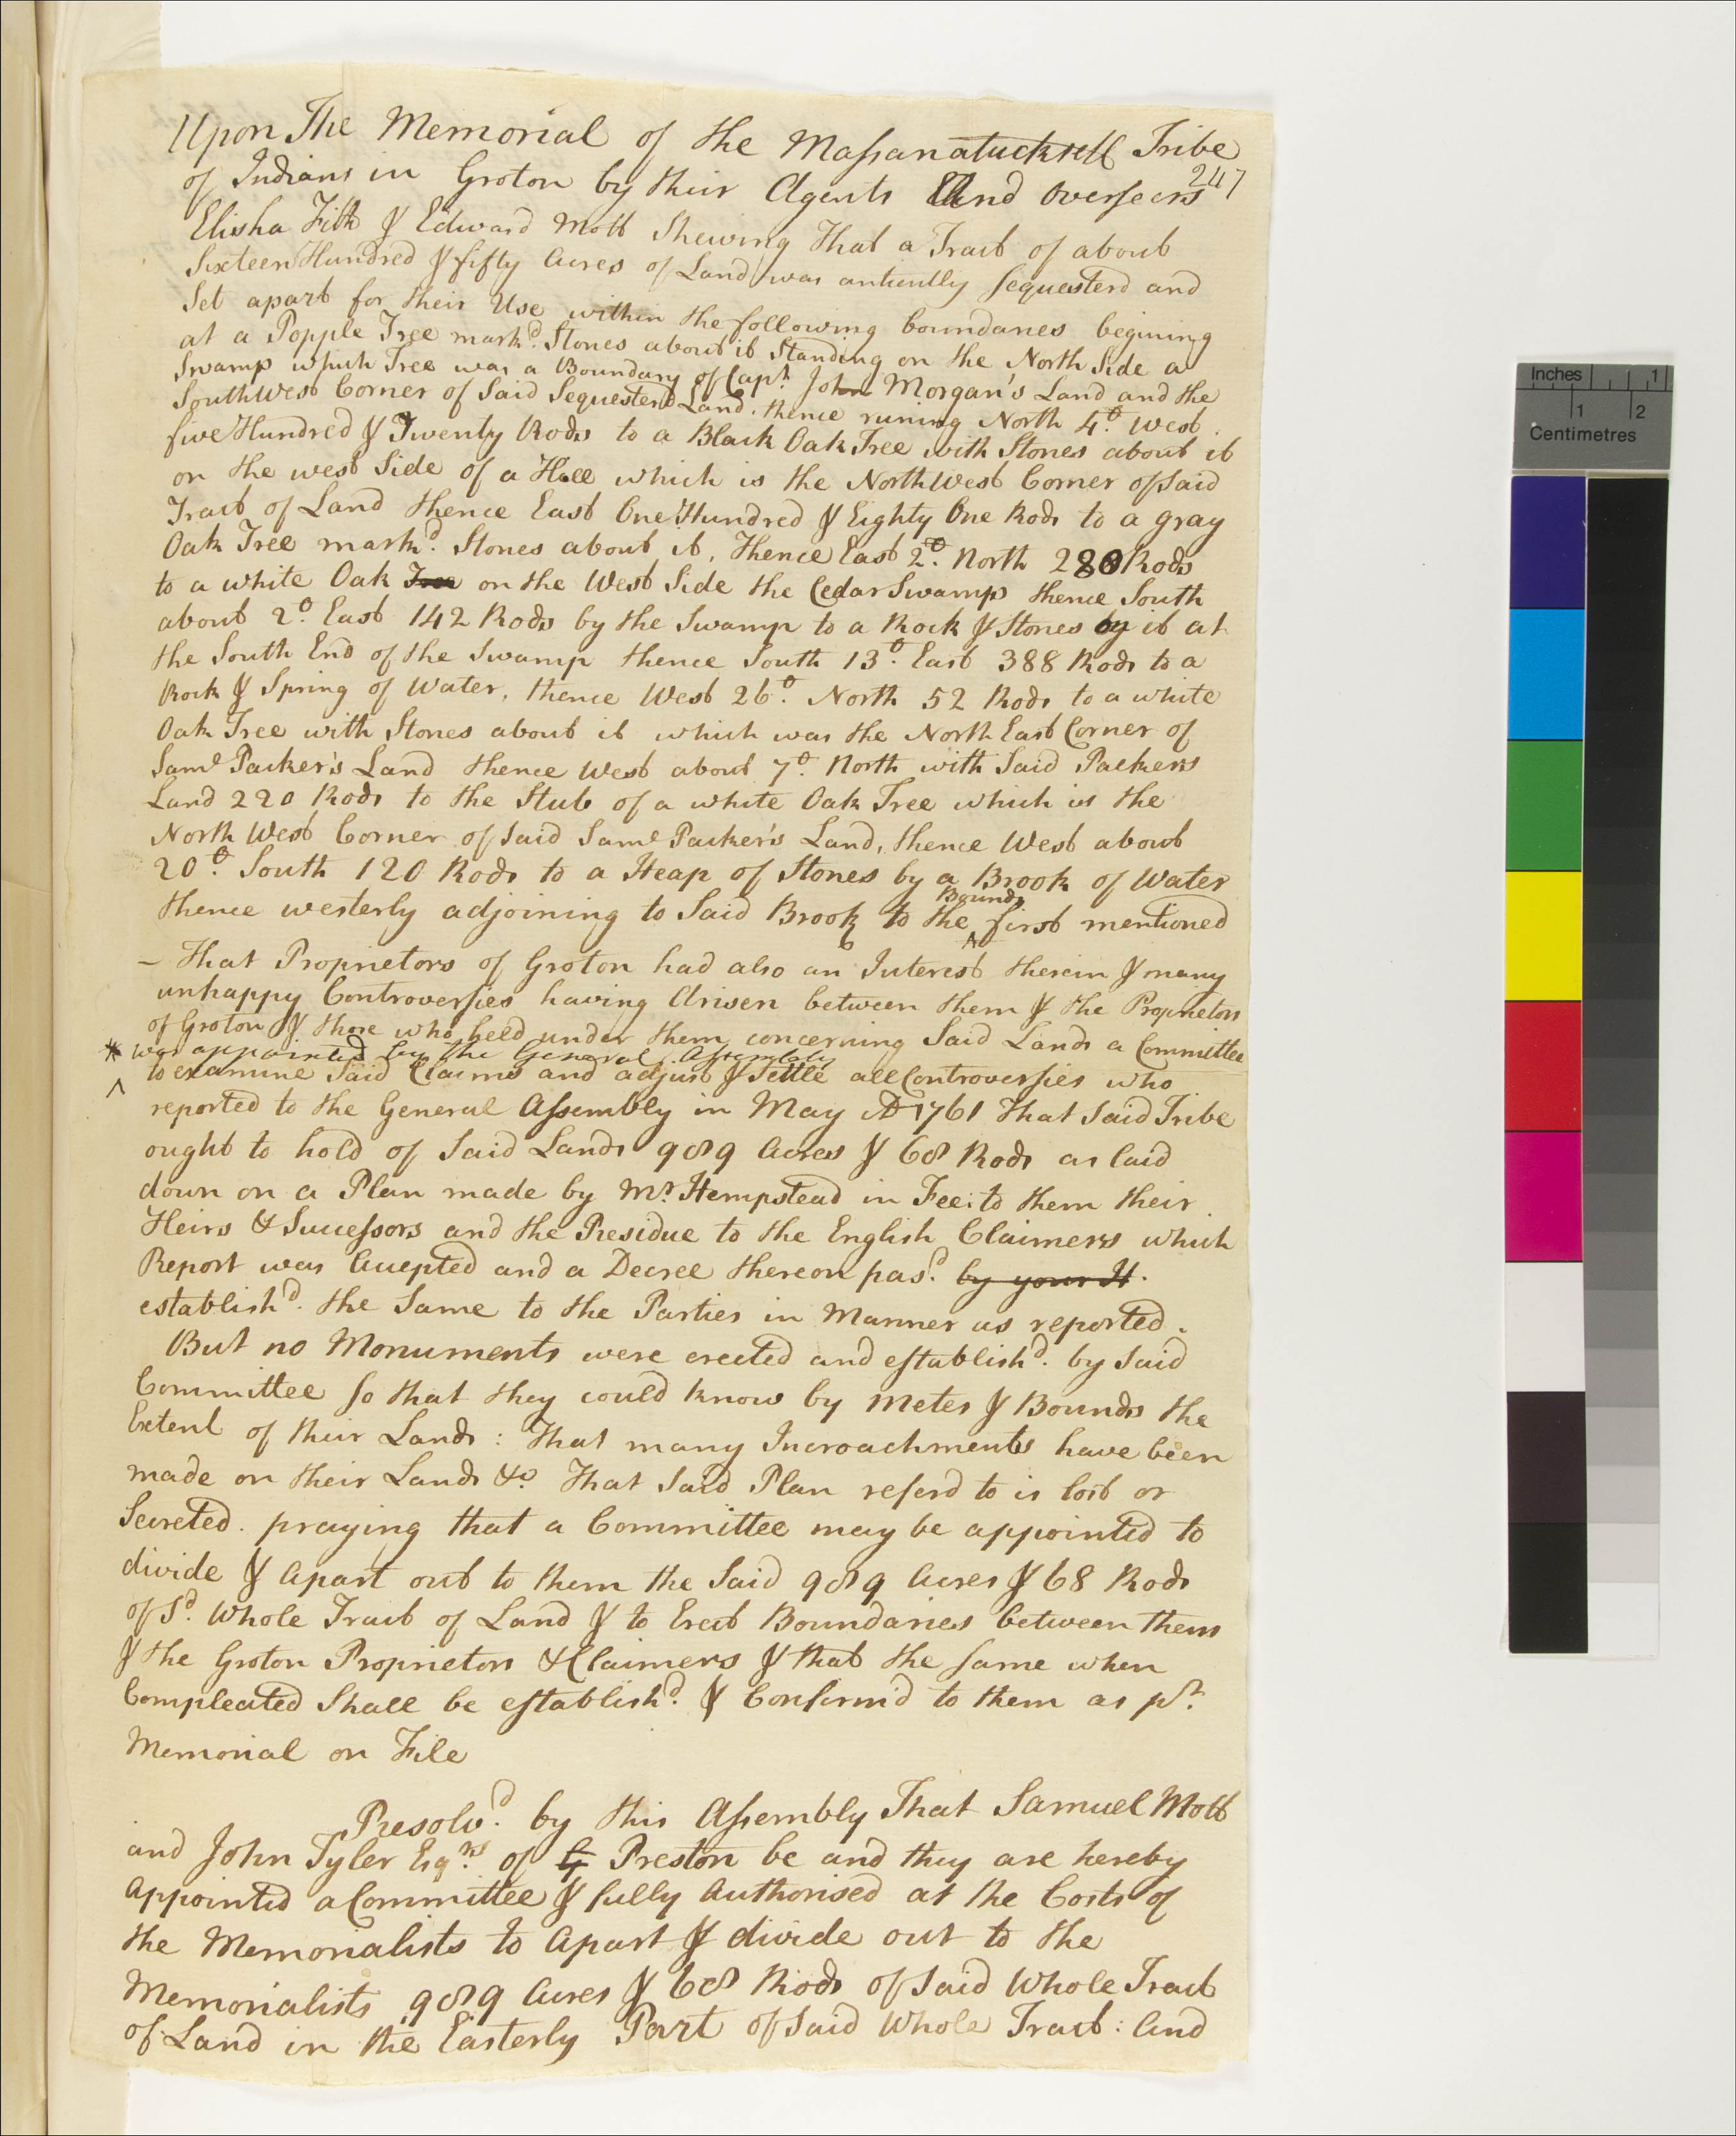 Upon The Memorial of the Massanatucksett Tribe
247
of Indians in Groton by their Agents And Overseers
Elisha Fitch & Edward Mott Shewing That a Tract of about
Sixteen Hundred & fifty Acres of Land was antiently sequesterd and
Set apart for their Use within the following boundaries begining
at a Popple Tree markd. Stones about it Standing on the North Side a
Swamp which Tree was a Boundary of Capt. John Morgan's Land and the
Southwest Corner of Said Sequesterd Land. thence runing North 4o. West.
five Hundred & Twenty Rods to a Black Oak Tree with Stones about it
on the west Side of a Hill which is the NorthWest Corner of Said
Tract of Land thence East One Hundred & Eighty One Rods to a gray
Oak Tree markd. Stones about it, Thence East 2o. North 280 Rods
to a white Oak Tree on the West Side the Cedar Swamp thence South
about 2o. East 142 Rods by the Swamp to a Rock & Stones by it at
the South End of the Swamp thence South 13o. East 388 Rods to a
Rock & Spring of Water, thence West 26o. North 52 Rods to a white
Oak Tree with Stones about it which was the North East Corner of
Saml Packer's Land thence West about 7o. North with Said Packers
Land 220 Rods to the Stub of a white Oak Tree which is the
North West Corner of Said Saml Packer's Land, thence West about
20o. South 120 Rods to a Heap of Stones by a Brook of Water
Bounds
thence westerly adjoining to Said Brook to the ^ first mentioned
– That Proprietors of Groton had also an Interest therein & many
unhappy Controversies having Arisen between them & the Proprietors
of Groton & those who held under them concerning Said Lands a Committee
* was appointed by the General Assembly
^ to examine Said Claims and adjust & Settle all Controversies who
reported to the General Assembly in May AD 1761 That Said Tribe
ought to hold of Said Lands 989 Acres & 68 Rods as laid
down on a Plan made by Mr. Hempstead in Fee: to them their
Heirs & Successors and the Residue to the English Claimers which
Report was Accepted and a Decree thereon pasd. by your H.
establishd. the Same to the Parties in Manner as reported.
But no Monuments were erected and establishd. by Said
Committee so that they could know by Metes & Bounds the
Extent of their Lands: That many Incroachments have been
made on their Lands &c. That Said Plan referd to is lost or
Secreted. praying that a Committee may be appointed to
divide & Apart out to them the Said 989 Acres & 68 Rods
of Sd. Whole Tract of Land & to Erect Boundaries between them
& the Groton Proprietors & Claimers & that the same when
Compleated Shall be establishd. & Confirm'd to them as pr.
Memorial on File
Resolvd. by this Assembly That Samuel Mott
and John Tyler Esqrs. of G Preston be and they are hereby
Appointed a Committee & fully Authorised at the Costs of
the Memorialists to Apart & divide out to the
Memorialists 989 Acres & 68 Rods of Said Whole Tract
of Land in the Easterly Part of Said Whole Tract: And
Inches 1
1 2
Centimetres